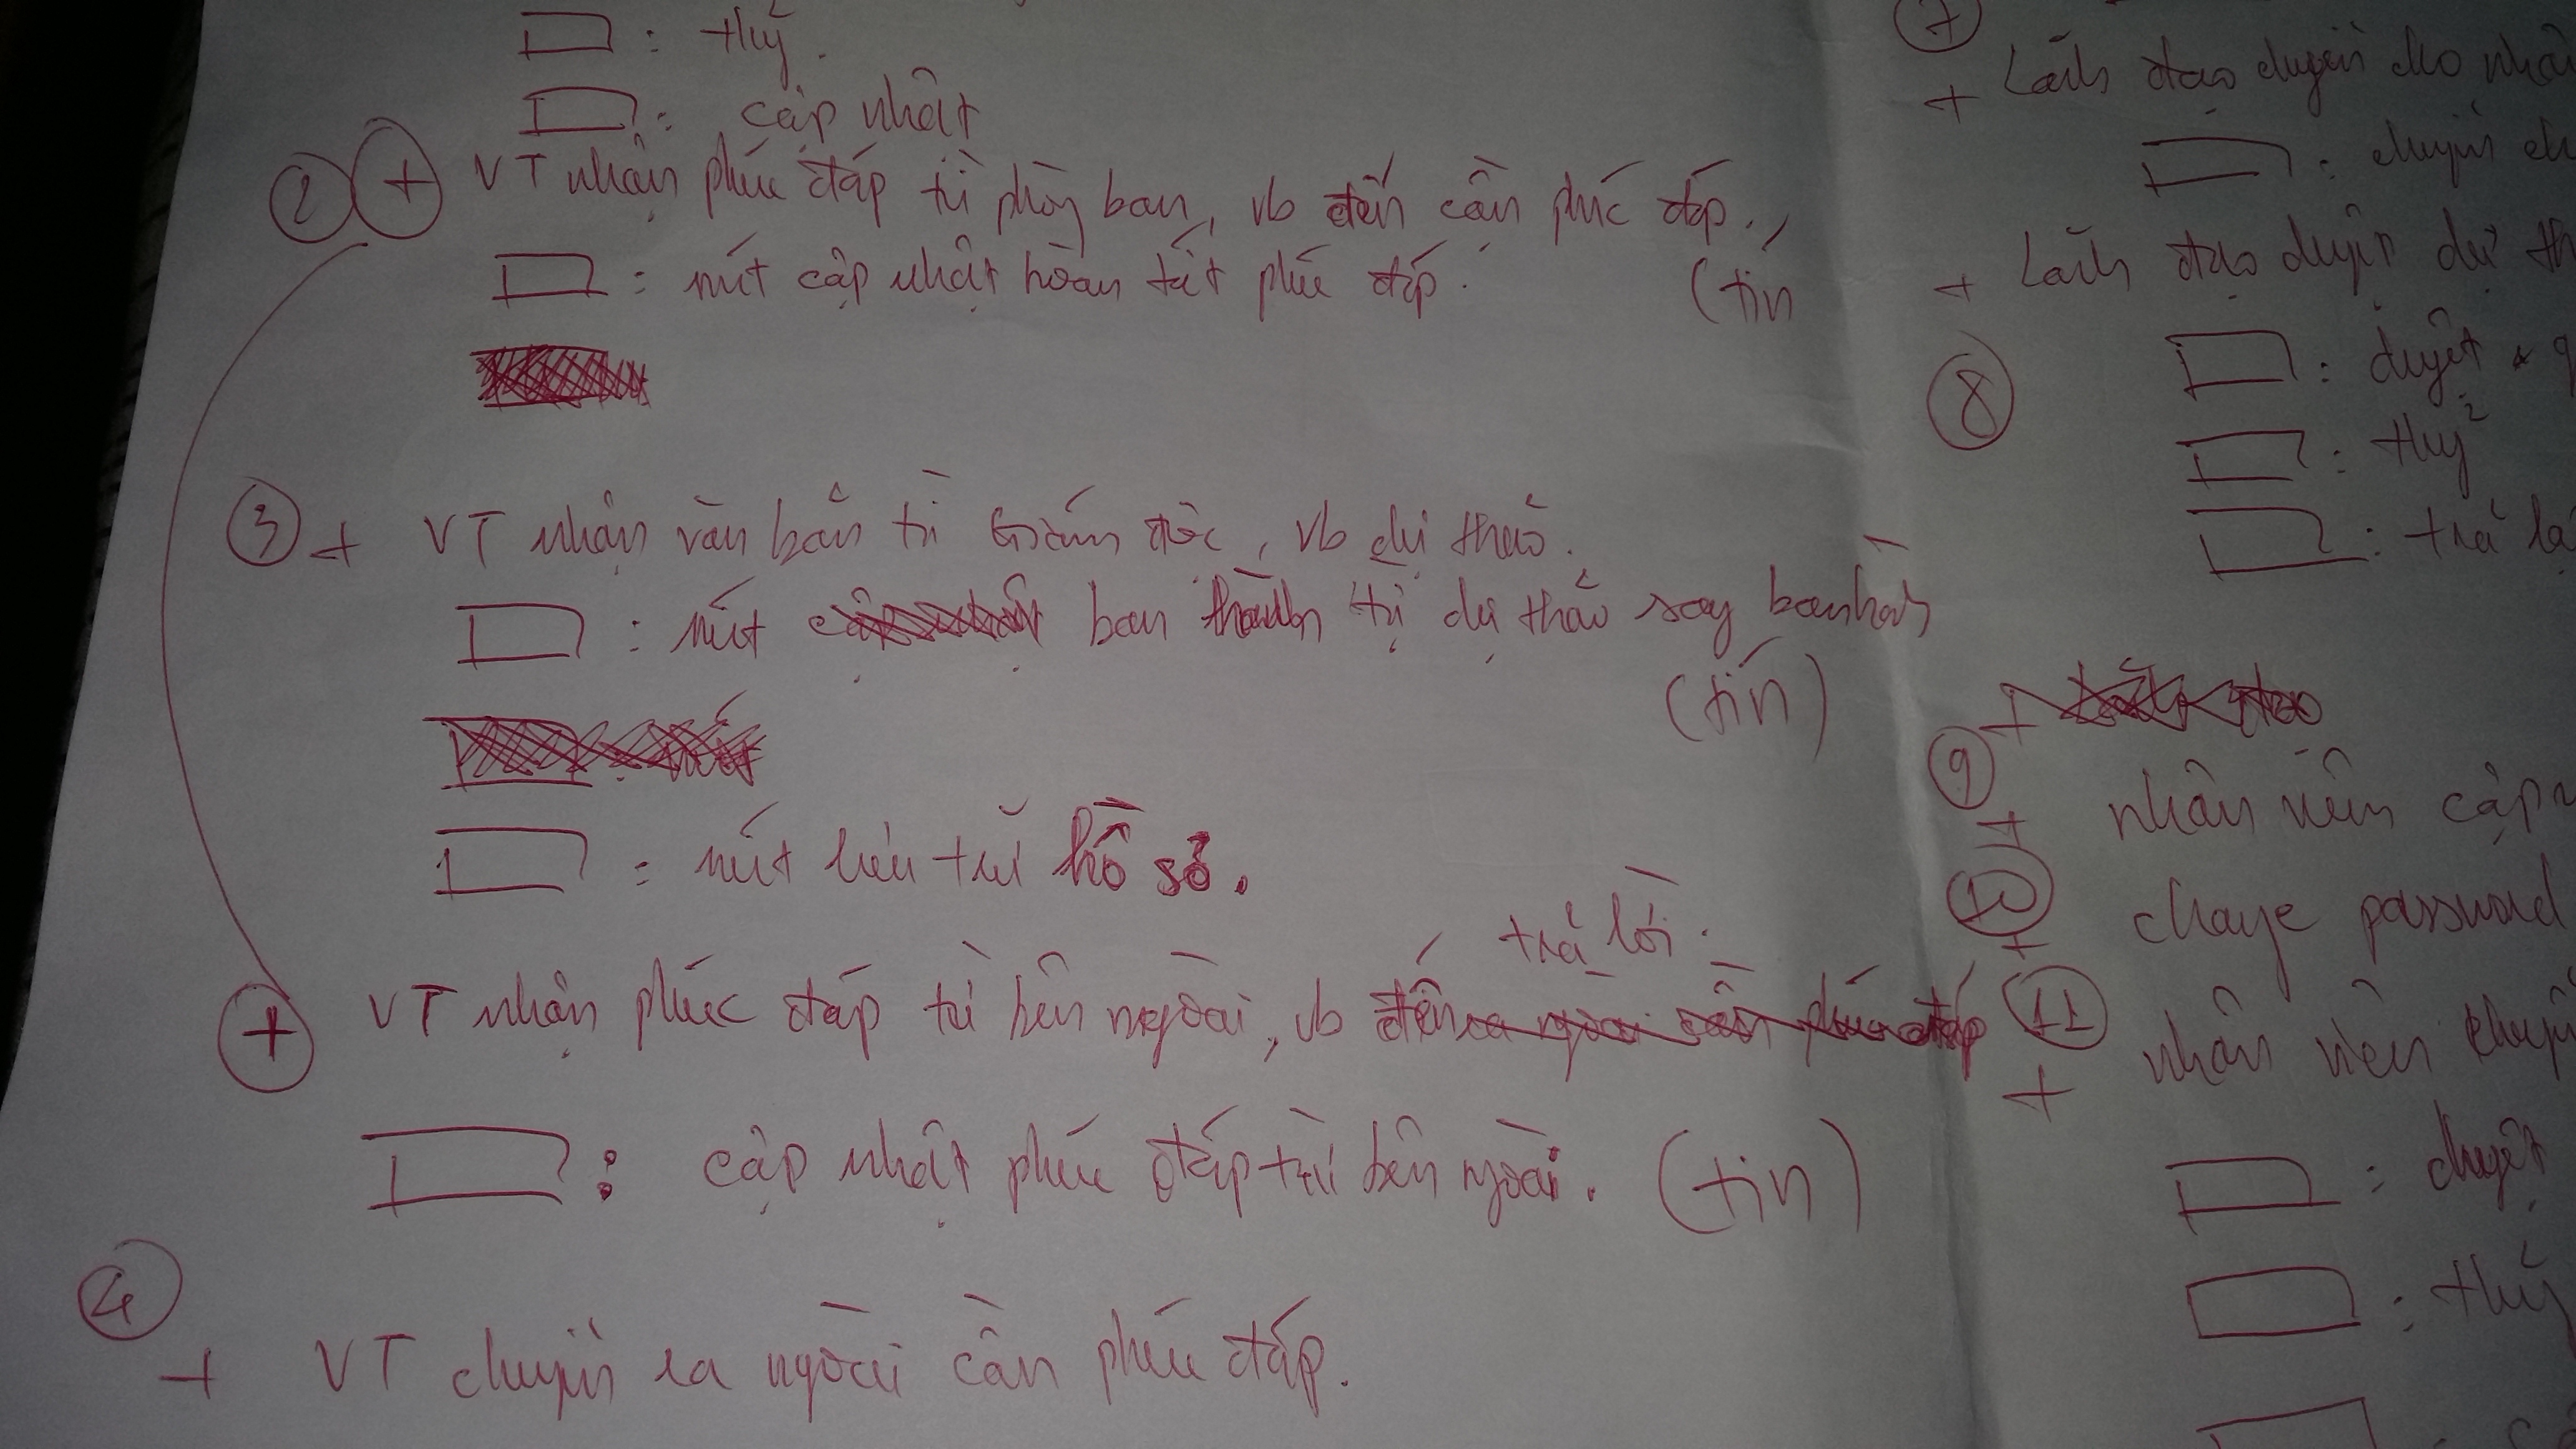 : hủy.
: cập nhật
② + VT nhận phúc đáp từ phòng ban, vb đến cần phúc đáp.,
: nút cập nhật hoàn tất phúc đáp. (tín
③ + VT nhận văn bản từ Giám đốc, vb dự thảo.
: nút ban hành từ dự thảo sag banhàh
(tín)
: nút lưu trữ hồ sơ.
trả lời.
+ VT nhận phúc đáp từ bên ngoài, vb đến
: cập nhật phúc đáp từ bên ngoài. (tín)
④
+ VT chuyển ra ngoài cần phúc đáp.
⑦
+ Lãnh đạo chuyển cho nhân
: chuyển ch
+ Lãnh đạo duyệt dự th
⑧ : duyệt & q
: hủy
: trả lạ
+
⑨ nhân viên cập n
+
⑩ change password
+
⑪ nhân viên chuyển
+
: duyệt
: hủy